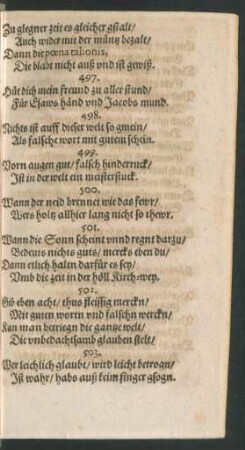 Zu glegner zeit es gleicher gstalt/
Auch wider mit der müntz bezalt/
Dann die pœna talionis,
Die bleibt nicht auß vnd ist gewiß.
497.
Hüt dich mein freund zu aller stund/
Für Esaws händ vnd Jacobs mund.
498.
Nichts ist auff dieser welt so gmein/
Als falsche wort mit gutem schein.
499.
Vorn augen gut/ falsch hinderruck/
Ist in der welt ein meisterstuck.
500.
Wann der neid brennet wie das fewr/
Wers holtz allhier lang nicht so thewr.
501.
Wann die Sonn scheint vnnd regnt darzu/
Bedeuts nichts guts/ mercks eben du/
Dann etlich haltn darfür es sey/
Vmb die zeit in der höll Kirchwey.
502.
Gib eben acht/ thus fleissig merckn/
Mit guten wortn vnd falschn werckn/
Kan man betriegn die gantze welt/
Die vnbedachtsamb glauben stelt/
503.
Wer leichlich glaubt/ wird leicht betrogn/
Ist wahr/ habs auß keim finger gsogn.